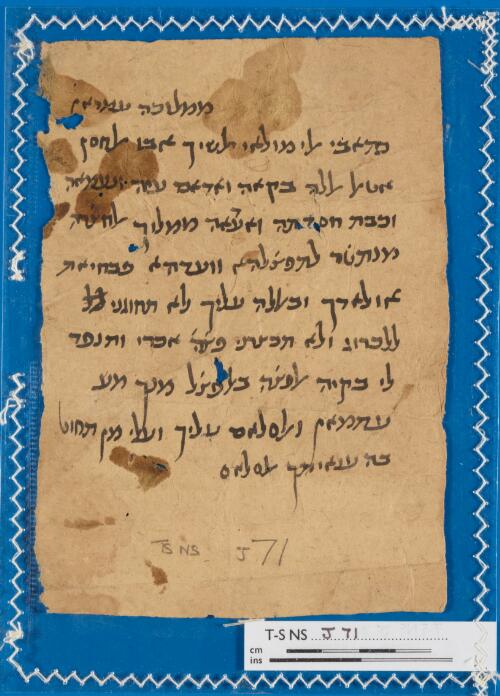 ממלוכה עמראן
כתאבי אלי מולאי אלשיך אבו אלחסן
אטאל אללה בקאה ואדאם עזה ונעמאה
וכבת חסדתה ואעדאה ממלוך אלחצרה
מנתטר לתפצלהא וועדהא פבחיאת
אולאדך ובאללה עליך לא תחוגני
ללכרוג ולא תכשרני
לי בקיה אלפצה בתפצל מנך מע
עתמאן ואלסלאם עליך ועלי מן תחוט
בה ענאיתך אלסלאם
TS NS J 71
T-S NS J 71
cm
ins